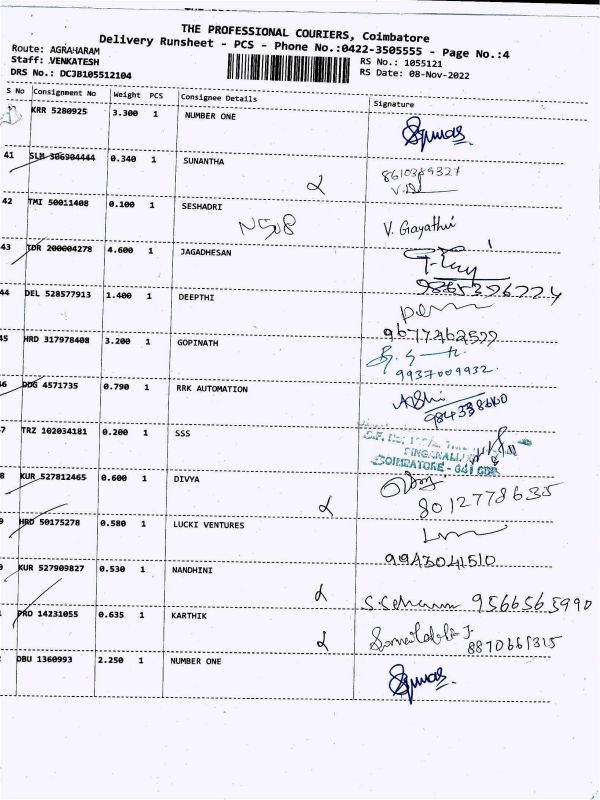 THE PROFESSIONAL COURIERS, Coimbatore
Delivery Runsheet - PCS - Phone No.:0422-3505555 - Page No.:4
Route: AGRAHARAM
RS No.: 1055121
Staff: VENKATESH
RS Date: 08-Nov-2022
DRS No.: DCJB105512104
S No Consignment No Weight PCS Consignee Details Signature
KRR 5280925 3.300 1 NUMBER ONE
41 SLM 306904444 0.340 1 SUNANTHA 8610389327
42 TMI 50011408 0.100 1 SESHADRI N508 V. Gayathri
43 TDR 200004278 4.600 1 JAGADHESAN
9865326224
44 DEL 528577913 1.400 1 DEEPTHI
9677262599
45 HRD 317978408 3.200 1 GOPINATH
9937009932
46 DDG 4571735 0.790 1 RRK AUTOMATION
7 TRZ 102034181 0.200 1 SSS
COIMBATORE - 641
8 KUR 527812465 0.600 1 DIVYA
8012778635
9 HRD 50175278 0.580 1 LUCKI VENTURES
9943041510
KUR 527909827 0.530 1 NANDHINI 9566565990
PRO 14231055 0.635 1 KARTHIK
8870661315
DBU 1360993 2.250 1 NUMBER ONE